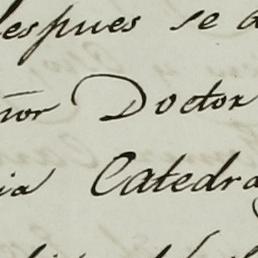 despues se a
ñor Doctor
ia Catedra